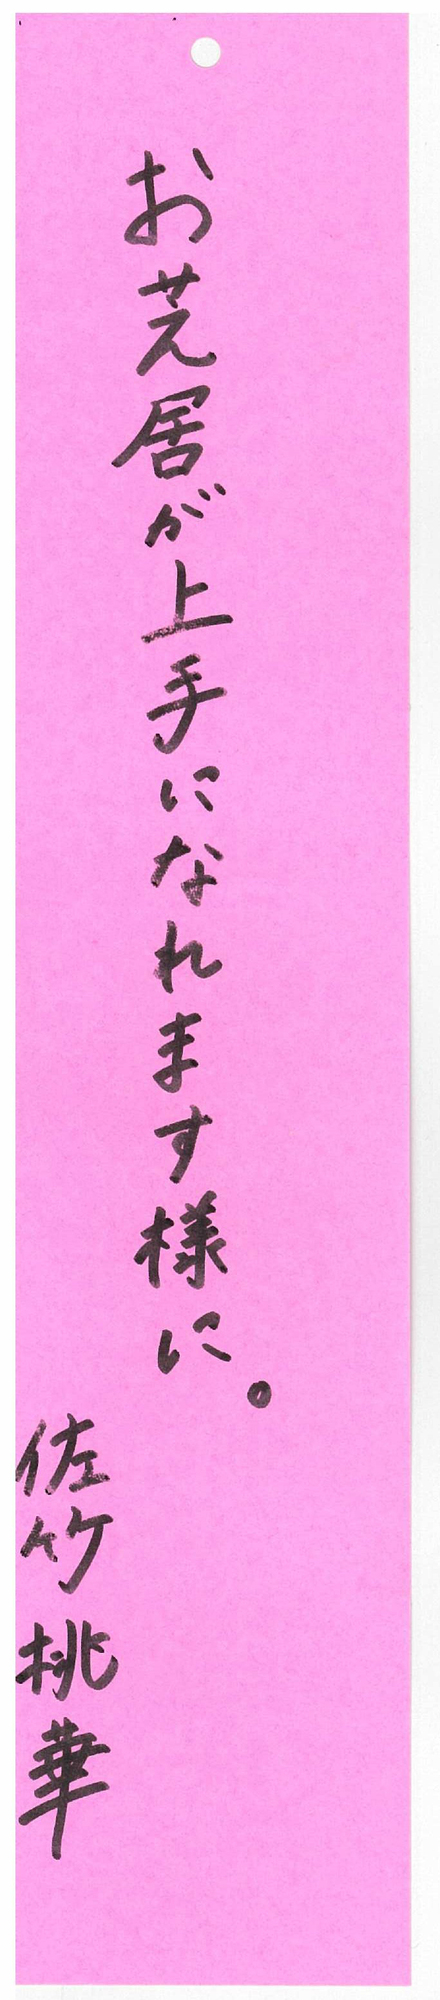 お芝居が上手になれます様に。
佐竹桃華